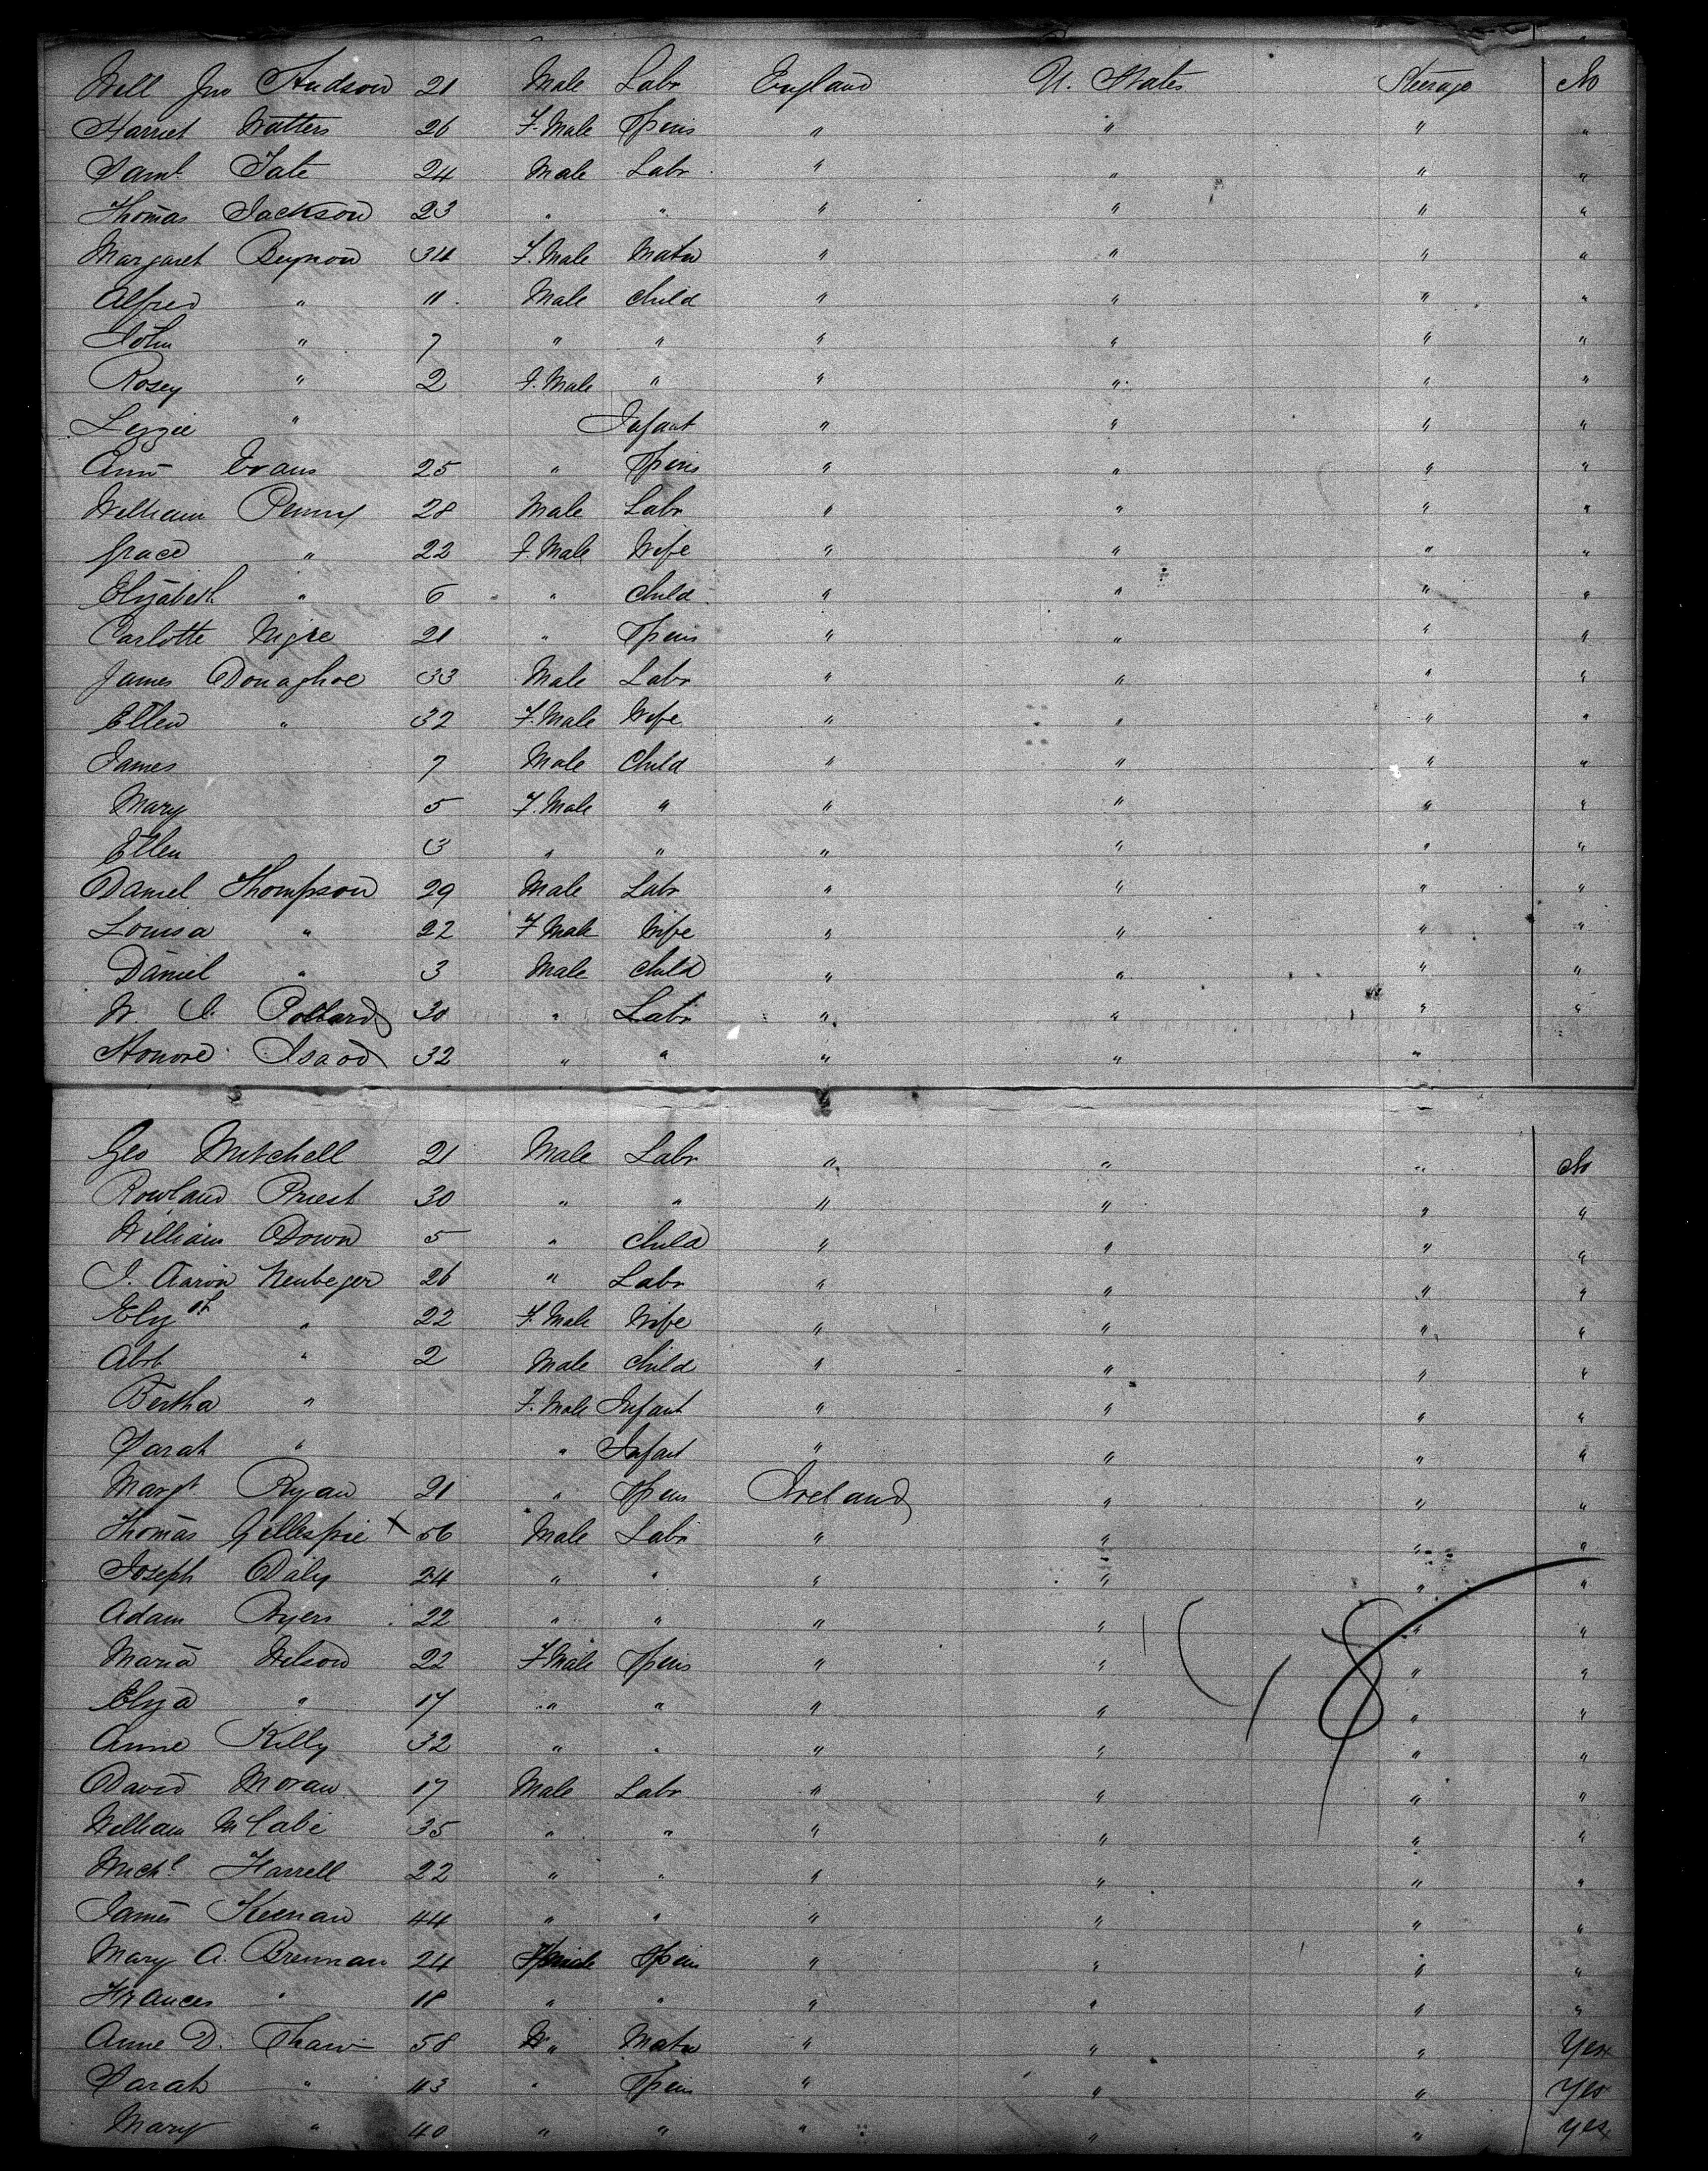 Will Jno Hudson 21 Male Labr England U. States Steerage No
Harriet Watters 26 F. Male Spins " " " "
Saml Tate 24 Male Labr " " " "
Thomas Jackson 23 " " " " " "
Margaret Beynon 34 F. Male Matn " " " "
Alfred " 11 Male Child " " " "
John " 7 " " " " " "
Rosey " 2 F. Male " " " " "
Lizzie " Infant " " " "
Ann Evans 25 " Spins " " " "
William Penny 28 Male Labr " " " "
Grace " 22 F. Male Wife " " " "
Elizabeth " 6 " Child " " " "
Carlotte 21 " Spins " " " "
James Donaghoe 33 Male Labr " " " "
Ellen " 32 F. Male Wife " " " "
James 7 Male Child " " " "
Mary 5 F. Male " " " " "
Ellen 3 " " " " " "
Daniel Thompson 29 Male Labr " " " "
Louisa " 22 F Male Wife " " " "
Daniel " 3 Male Child " " " "
W Pollard 30 " Labr " " " "
Honore 32 " " " " "
Geo Mitchell 21 Male Labr " " " No
Rowland Priest 30 " " " " " "
William Down 5 " Child " " " "
J. Aaron Neubeger 26 " Labr " " " "
Elizth " 22 F. Male Wife " " " "
Abb " 2 Male Child " " " "
Bertha " F. Male Infant " " " "
Sarah " " Infant " " " "
Margt Ryan 21 " Spins Ireland " " "
Thomas Gillespie X 56 Male Labr " " " "
Joseph Daly 24 " " " " " "
Adam Byers 22 " " " " " "
Maria Wilson 22 F Male Spins " " " "
Eliza " 17 " " " " " "
Anne Killy 32 " " " " " "
David Moran 17 Male Labr " " " "
William McCabe 35 " " " " " "
Michl Farrell 22 " " " " " "
James Keenan 44 " " " " " "
Mary A. Brennan 24 Female Spins " " " "
Frances " 18 " " " " " "
Anne D. Shaw 58 " Matn " " " Yes
Sarah " 43 " Spins " " " Yes
Mary " 40 " " " " " Yes